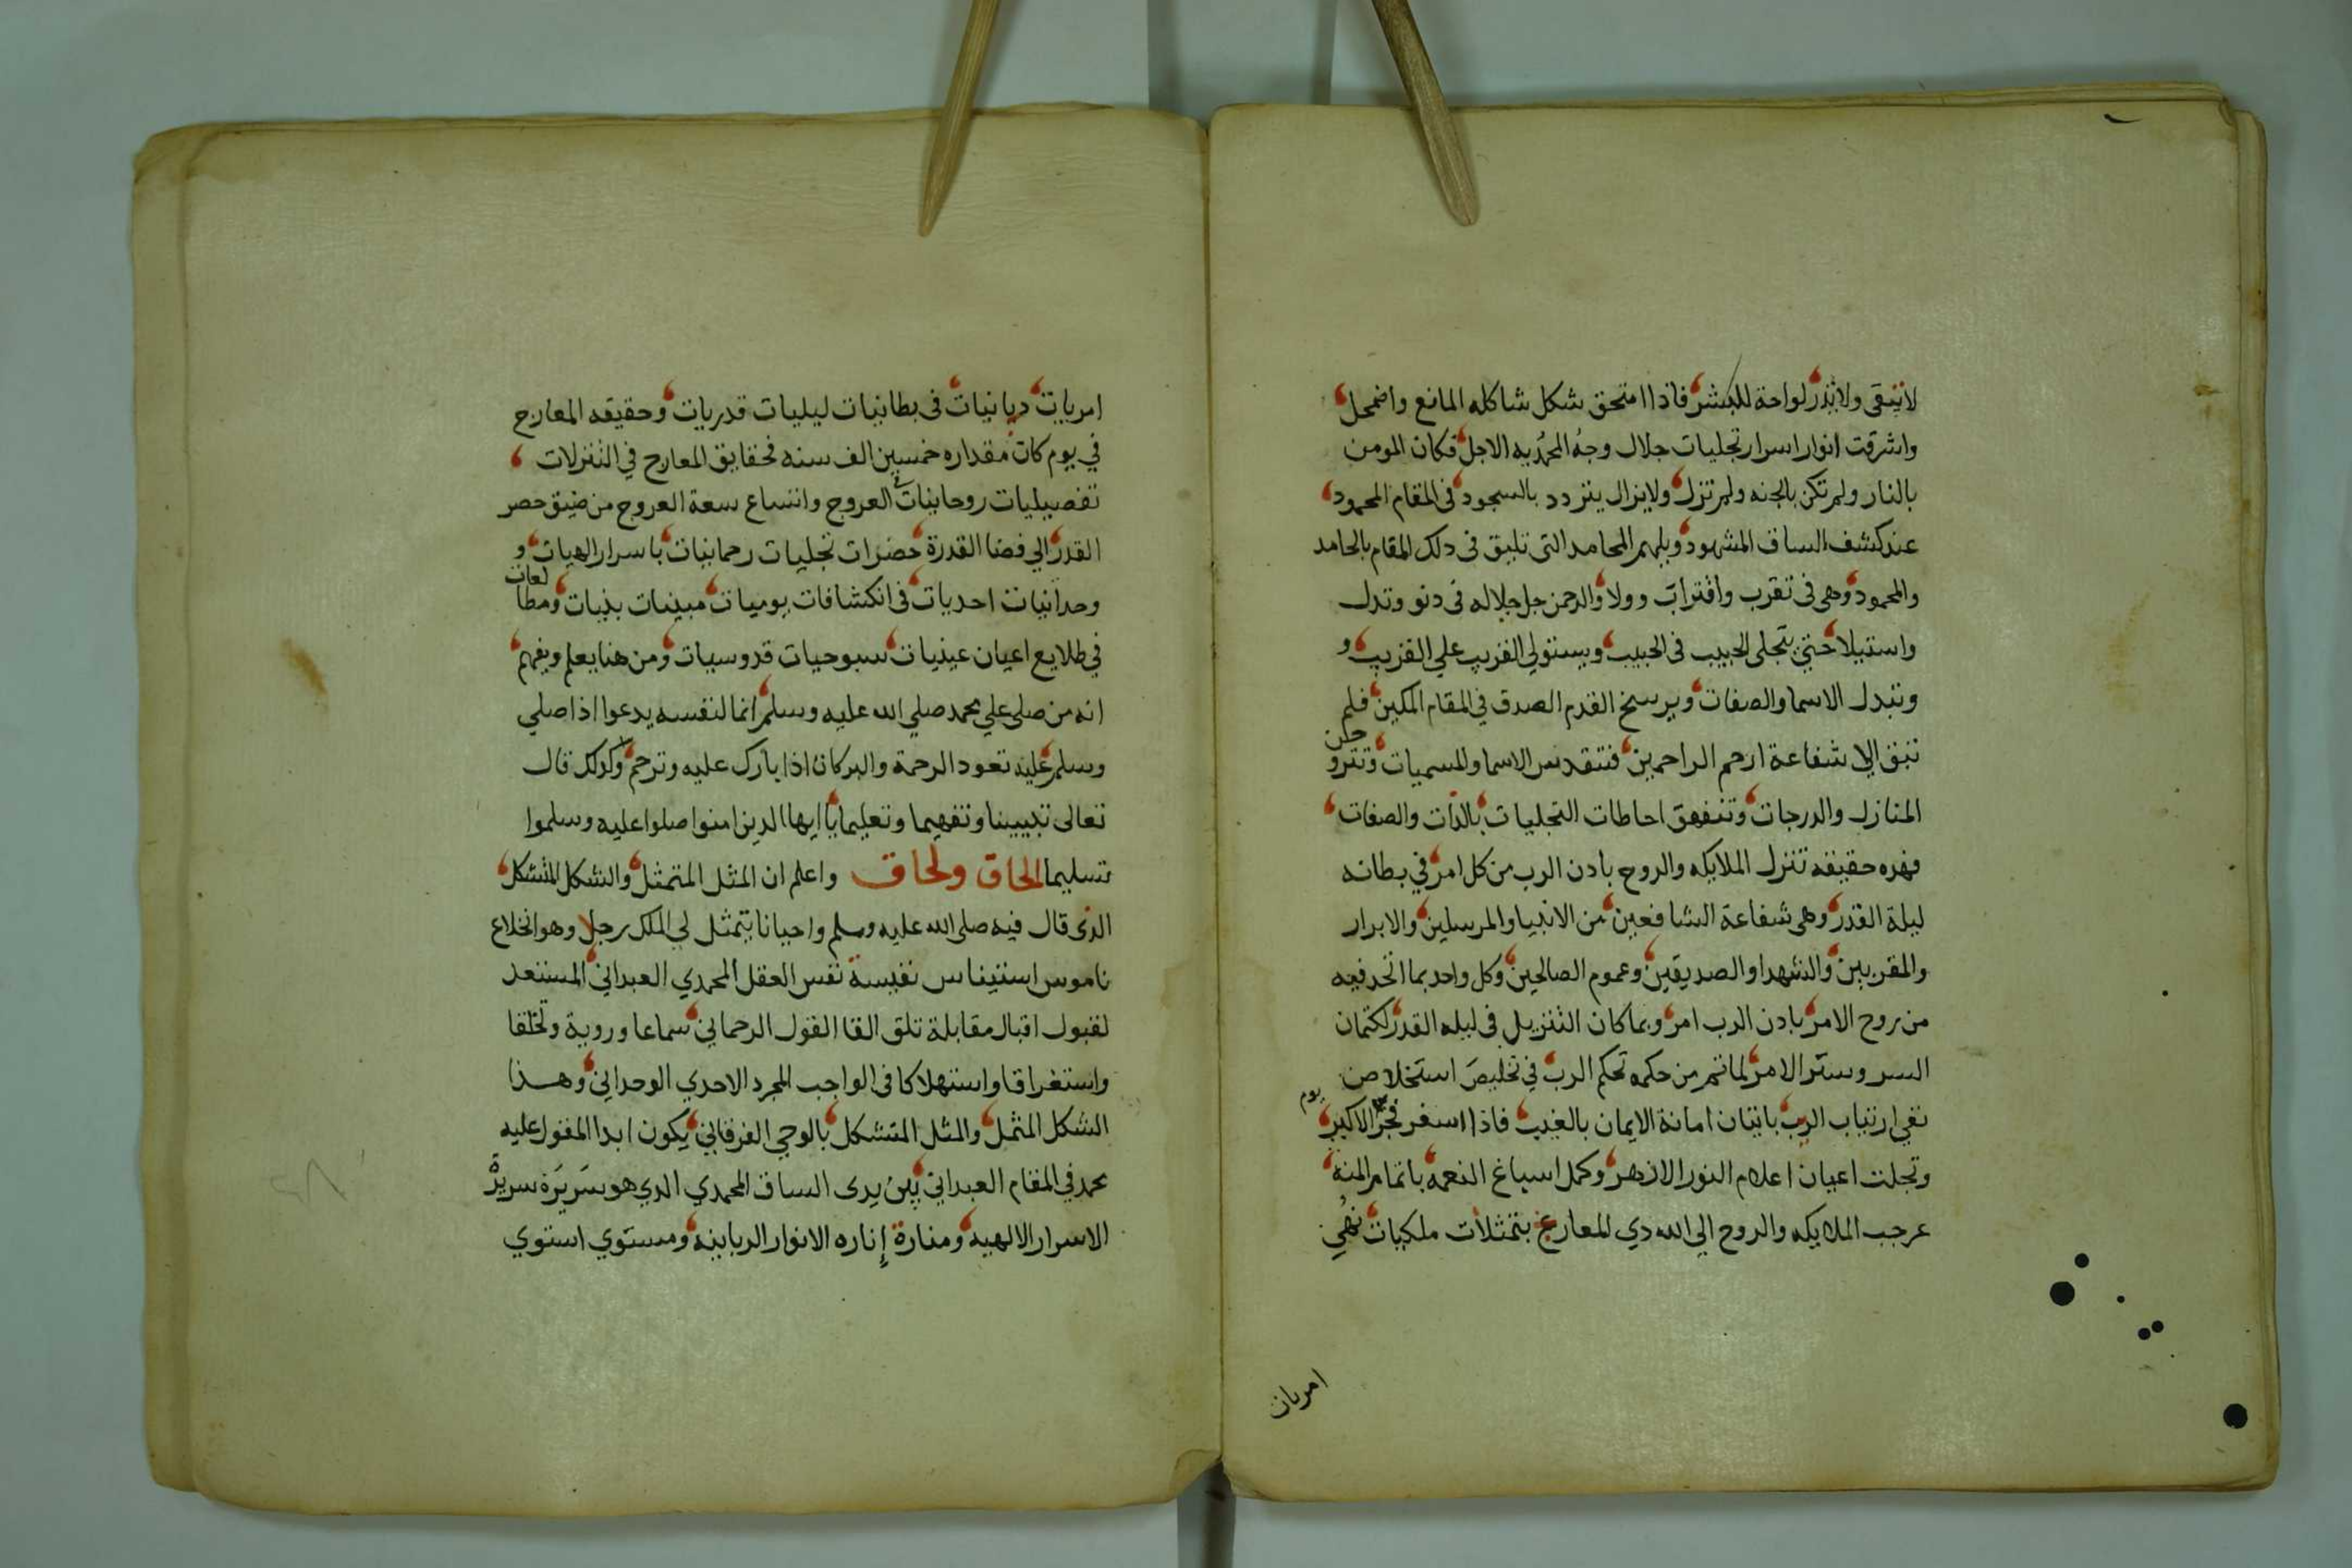 لاتبقى ولاتذر لواحة للبشر فاذا امتحق شكل شاكله المانع واضمحل
واشرقت انوار اسرار تجليات جلال وجه المحمديه الاجل فكان المومن
بالنار ولم تكن بالجنه ولم تزل ولايزال يتردد بالسجود فى المقام المحمود
عند كشف الساق المشهود ويلهم المحامد التى تليق فى دلك المقام بالحامد
والمحمود وهى فى تقرب واقتراب وولا والرحمن جل جلاله فى دنو وتدل
واستيلا حتي يتجلى الحبيب فى الحبيب ويستولي القريب علي القريب و
وتبدل الاسما والصفات ويرسخ القدم الصدق في المقام المكين فلم
تبق الا شفاعة ارحم الراحمين فتتقدس الاسما والمسميات وتترو حن
المنازل والدرجات وتنفهق احاطات التجليات بالدات والصفات
فهده حقيقه تنزل الملايكه والروح بادن الرب من كل امر في بطانه
ليلة القدر وهى شفاعة الشافعين من الانبيا والمرسلين والابرار
والمقربين والشهدا والصديقين وعموم الصالحين وكل واحد بما اتحد فيه
من روح الامر بادن الرب امر وبما كان التنزيل فى ليله القدر لكتمان
السر وستر الامر لماتم من حكمه تحكم الرب في تخليص استخلاص
نفي ارتياب الريب باتيان امانة الايمان بالغيب فاذا اسفر فجر الاكبر يوم
وتجلت اعيان اعلام النور الازهر وكمل اسباغ النعمه باتمام المنه
عرجب الملايكه والروح الي الله دي المعارج بتمثلات ملكيات نهي
امريات
امريات ديانيات فى بطانيات ليليات قدريات وحقيقه المعارج
في يوم كان مقداره خمسين الف سنه فحقايق المعارج في التنزلات
تفصيليات روحانيات العروج واتساع سعة العروج من ضيق حصر
القدر الي فضا القدرة حضرات تجليات رحمانيات باسرار الهيات و
وحدانيات احديات فى انكشافات يوميات مبينات بينات ومطالعات
في طلايع اعيان عينيات سبوحيات قدوسيات ومن هنا يعلم ويفهم
انه من صلى علي محمد صلي الله عليه وسلم انما لنفسه يدعوا اذا صلي
وسلم عليه تعود الرحمة والبركات اذا بارك عليه وترحم وكدلك قال
تعالى تبيينا وتفهيما وتعليما يا ايها الدين امنوا صلوا عليه وسلموا
تسليما الحاق ولحاق واعلم ان المثل المتمثل والشكل المتشكل
الذى قال فيه صلى الله عليه وسلم واحيانا يتمثل لي الملك رجلا وهو انخلاع
ناموس استيناس نفيسة نفس العقل المحمدي العبداني المستعد
لقبول اقبال مقابلة تلق القا القول الرحماني سماعا وروية وتخلقا
واستغراقا واستهلاكا فى الواجب المجرد الاحدي الوحداني وهذا
الشكل المتمثل والمثل المتشكل بالوحي الفرقاني يكون ابدا المقول عليه
محمد في المقام العبداني بين يدى الساق المحمدي الدي هو سريرة سرير
الاسرار الالهيه ومنارة إناره الانوار الربانيه ومستوي استوي